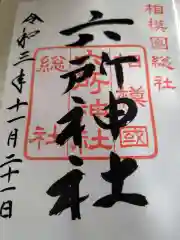 相模國総社
六所神社
令和三年十一月二十一日
相模國
六所神社
総社